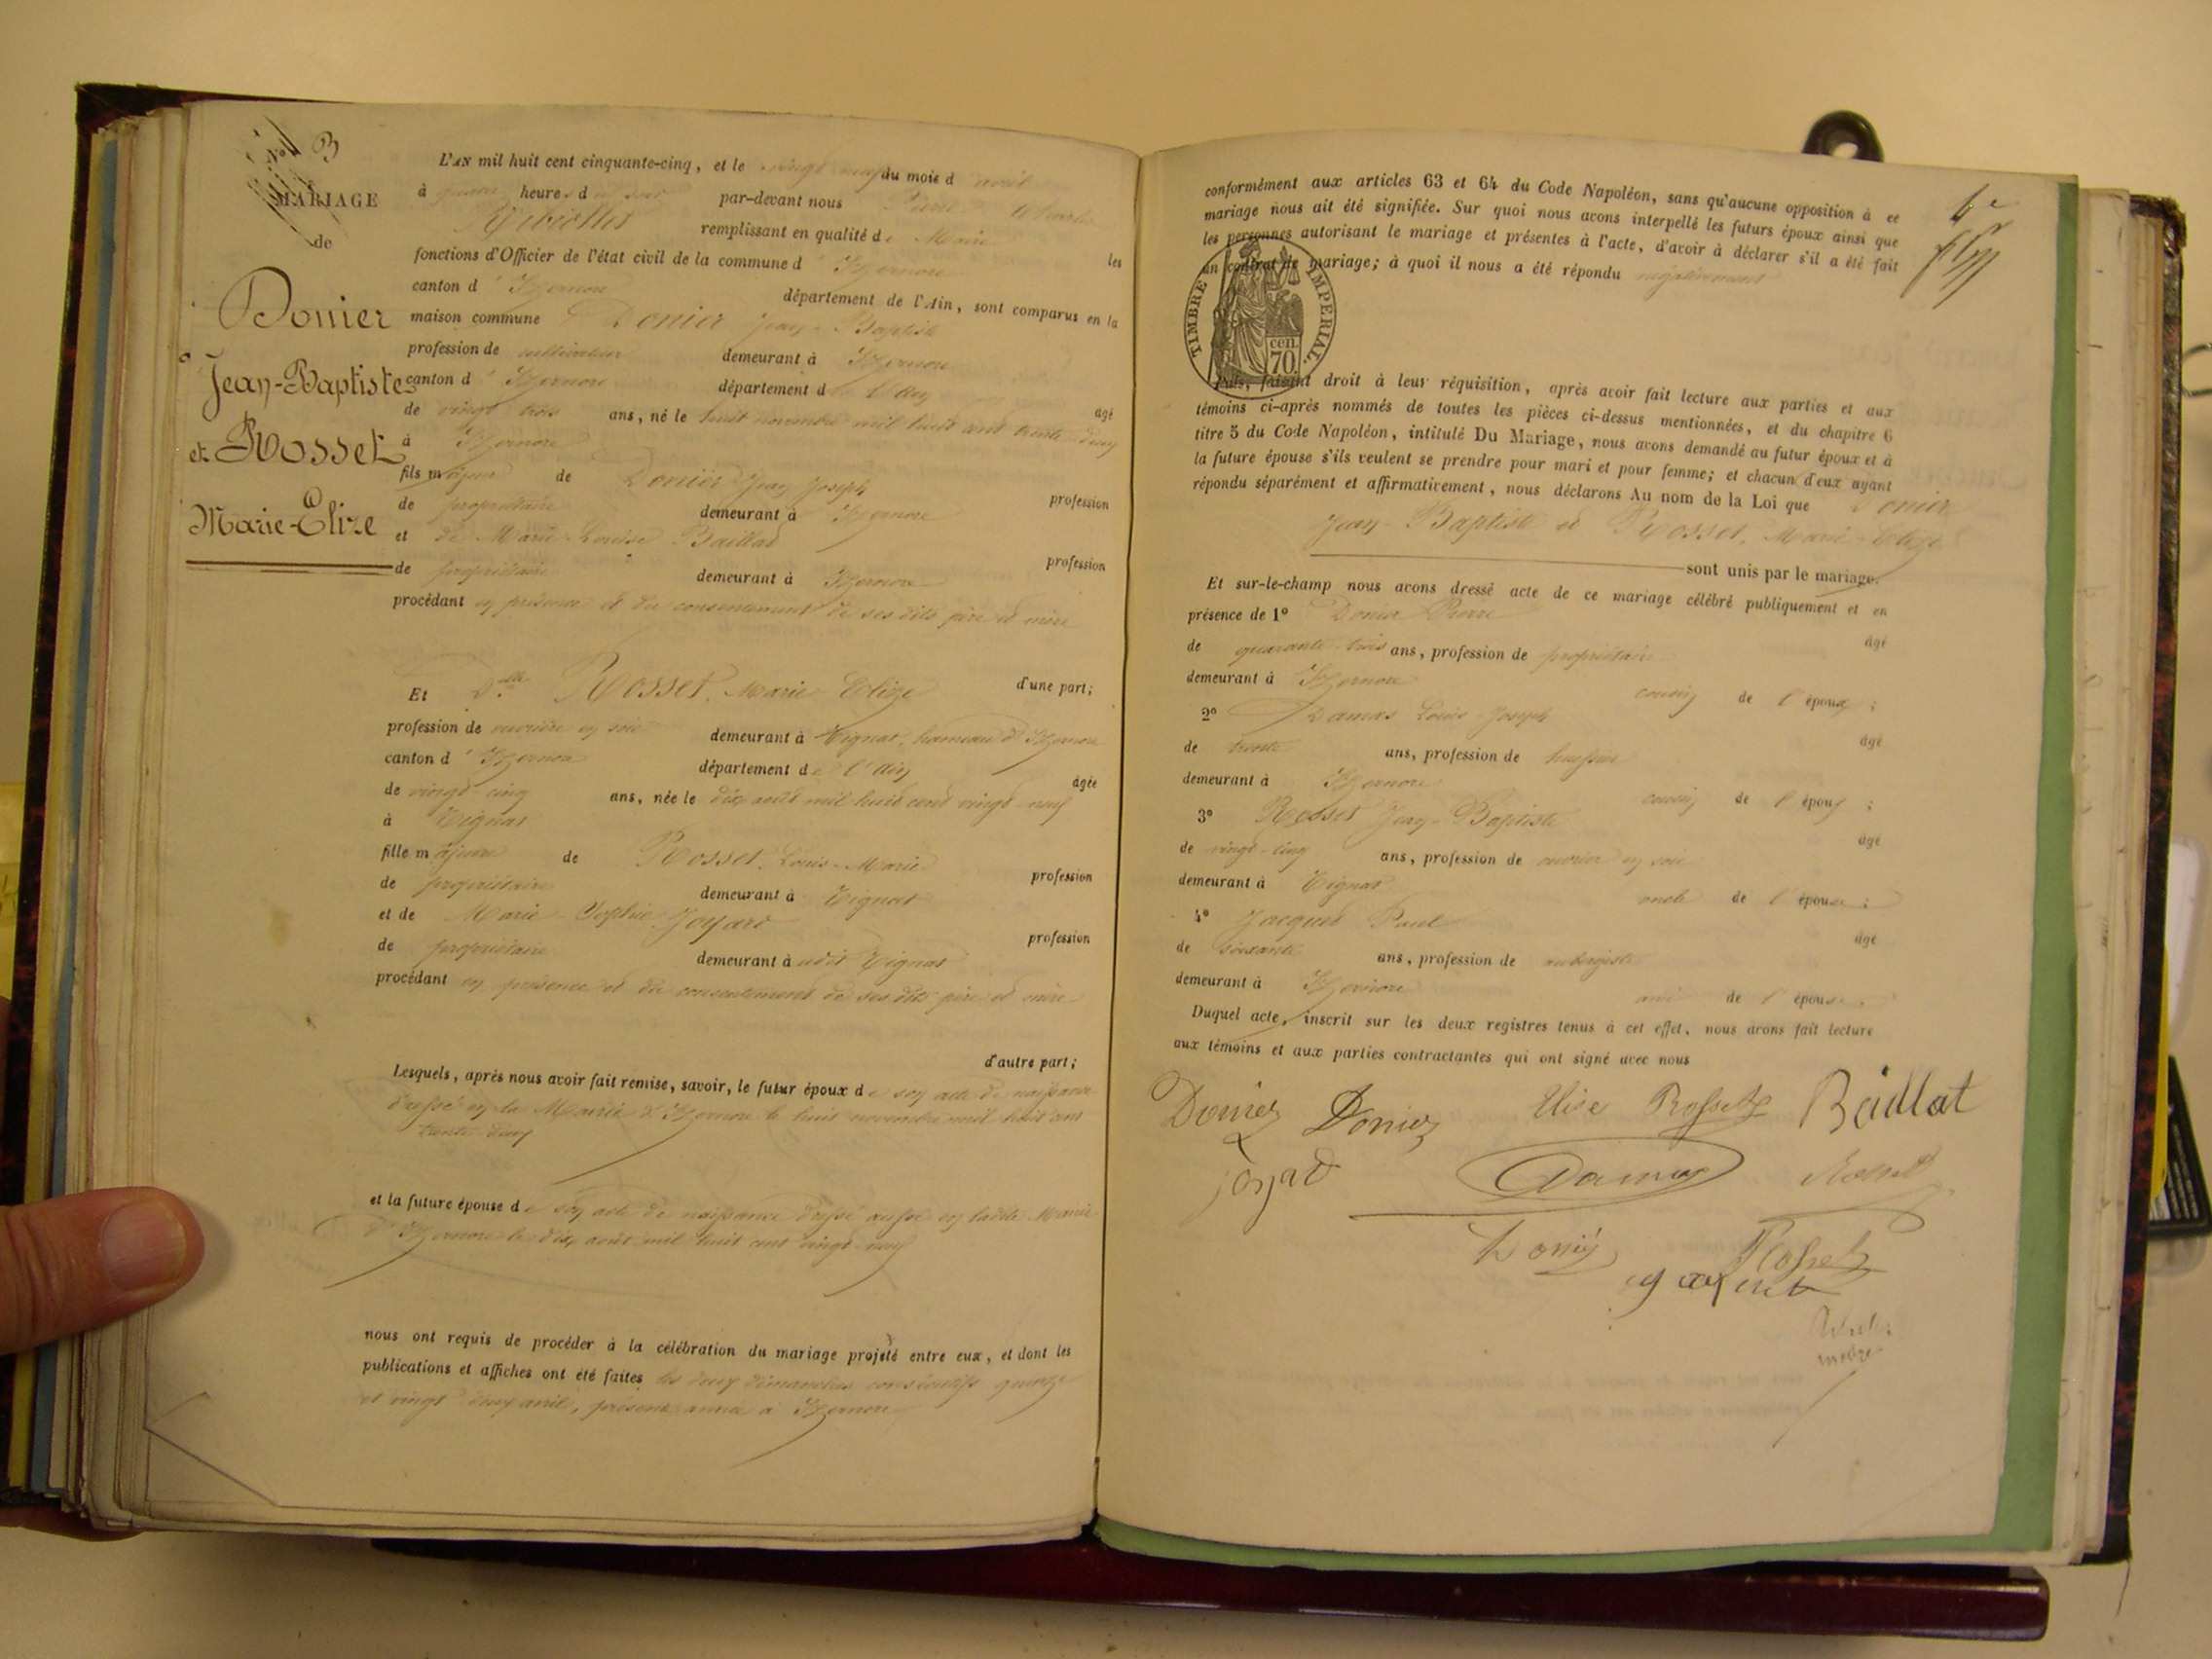 3
MARIAGE
de
Donier
Jean-Baptiste
et Rosset
Marie-Elize
L'AN mil huit cent cinquante-cinq, et le vingt neuf du mois d avril
à heures du soir par-devant nous Pierre
remplissant en qualité de Maire les
fonctions d'Officier de l'état civil de la commune d'Izernore
canton d'Izernore département de l'Ain, sont comparus en la
maison commune Donier Jean-Baptiste
profession de cultivateur demeurant à Izernore
canton d'Izernore département de l'Ain âgé
de vingt trois ans, né le huit novembre mil huit cent trente deux
à Izernore
fils majeur de Donier Jean Joseph profession
de propriétaire demeurant à Izernore
et de Marie Louise Baillat profession
de propriétaire demeurant à Izernore
procédant en présence et du consentement de ses dits père et mère
d'une part;
Et Dlle Rosset, Marie Elize
profession de ouvrière en soie demeurant à Tignat, hameau d'Izernore
canton d'Izernore département de l'Ain âgée
de vingt-cinq ans, née le dix août mil huit cent vingt-neuf
à Tignat
fille majeure de Rosset, Louis-Marie profession
de propriétaire demeurant à Tignat
et de Marie-Sophie Joyard profession
de propriétaire demeurant audit Tignat
procédant en présence et du consentement de ses dits père et mère
d'autre part;
Lesquels, après nous avoir fait remise, savoir, le futur époux de son acte de naissance
dressé en la Mairie d'Izernore le huit novembre mil huit cent
trente deux
et la future épouse de son acte de naissance dressé aussi en ladite Mairie
d'Izernore le dix août mil huit cent vingt-neuf
nous ont requis de procéder à la célébration du mariage projeté entre eux, et dont les
publications et affiches ont été faites les deux dimanches consécutifs quinze
et vingt deux avril, présente année à Izernore
conformément aux articles 63 et 64 du Code Napoléon, sans qu'aucune opposition à ce
mariage nous ait été signifiée. Sur quoi nous avons interpellé les futurs époux ainsi que
les personnes autorisant le mariage et présentes à l'acte, d'avoir à déclarer s'il a été fait
un contrat de mariage; à quoi il nous a été répondu négativement
TIMBRE IMPERIAL.
cen.
70.
Puis, faisant droit à leur réquisition, après avoir fait lecture aux parties et aux
témoins ci-après nommés de toutes les pièces ci-dessus mentionnées, et du chapitre 6
titre 5 du Code Napoléon, intitulé Du Mariage, nous avons demandé au futur époux et à
la future épouse s'ils veulent se prendre pour mari et pour femme; et chacun d'eux ayant
répondu séparément et affirmativement, nous déclarons Au nom de la Loi que Donier
Jean-Baptiste et Rosset, Marie-Elize
sont unis par le mariage.
Et sur-le-champ nous avons dressé acte de ce mariage célébré publiquement et en
présence de 1° Donier Pierre âgé
de quarante-trois ans, profession de propriétaire
demeurant à Izernore cousin de l'époux;
2° Damas Louis-Joseph âgé
de trente ans, profession de huissier
demeurant à Izernore cousin de l'époux;
3° Rosset Jean-Baptiste âgé
de vingt-cinq ans, profession de ouvrier en soie
demeurant à Tignat oncle de l'épouse;
4° Jacquet Paul âgé
de soixante ans, profession de aubergiste
demeurant à Izernore ami de l'épouse.
Duquel acte, inscrit sur les deux registres tenus à cet effet, nous avons fait lecture
aux témoins et aux parties contractantes qui ont signé avec nous
Donier Donier Elise Rosset Baillat
Joyard Damas Rosset
Donier Rosset
Jacquet